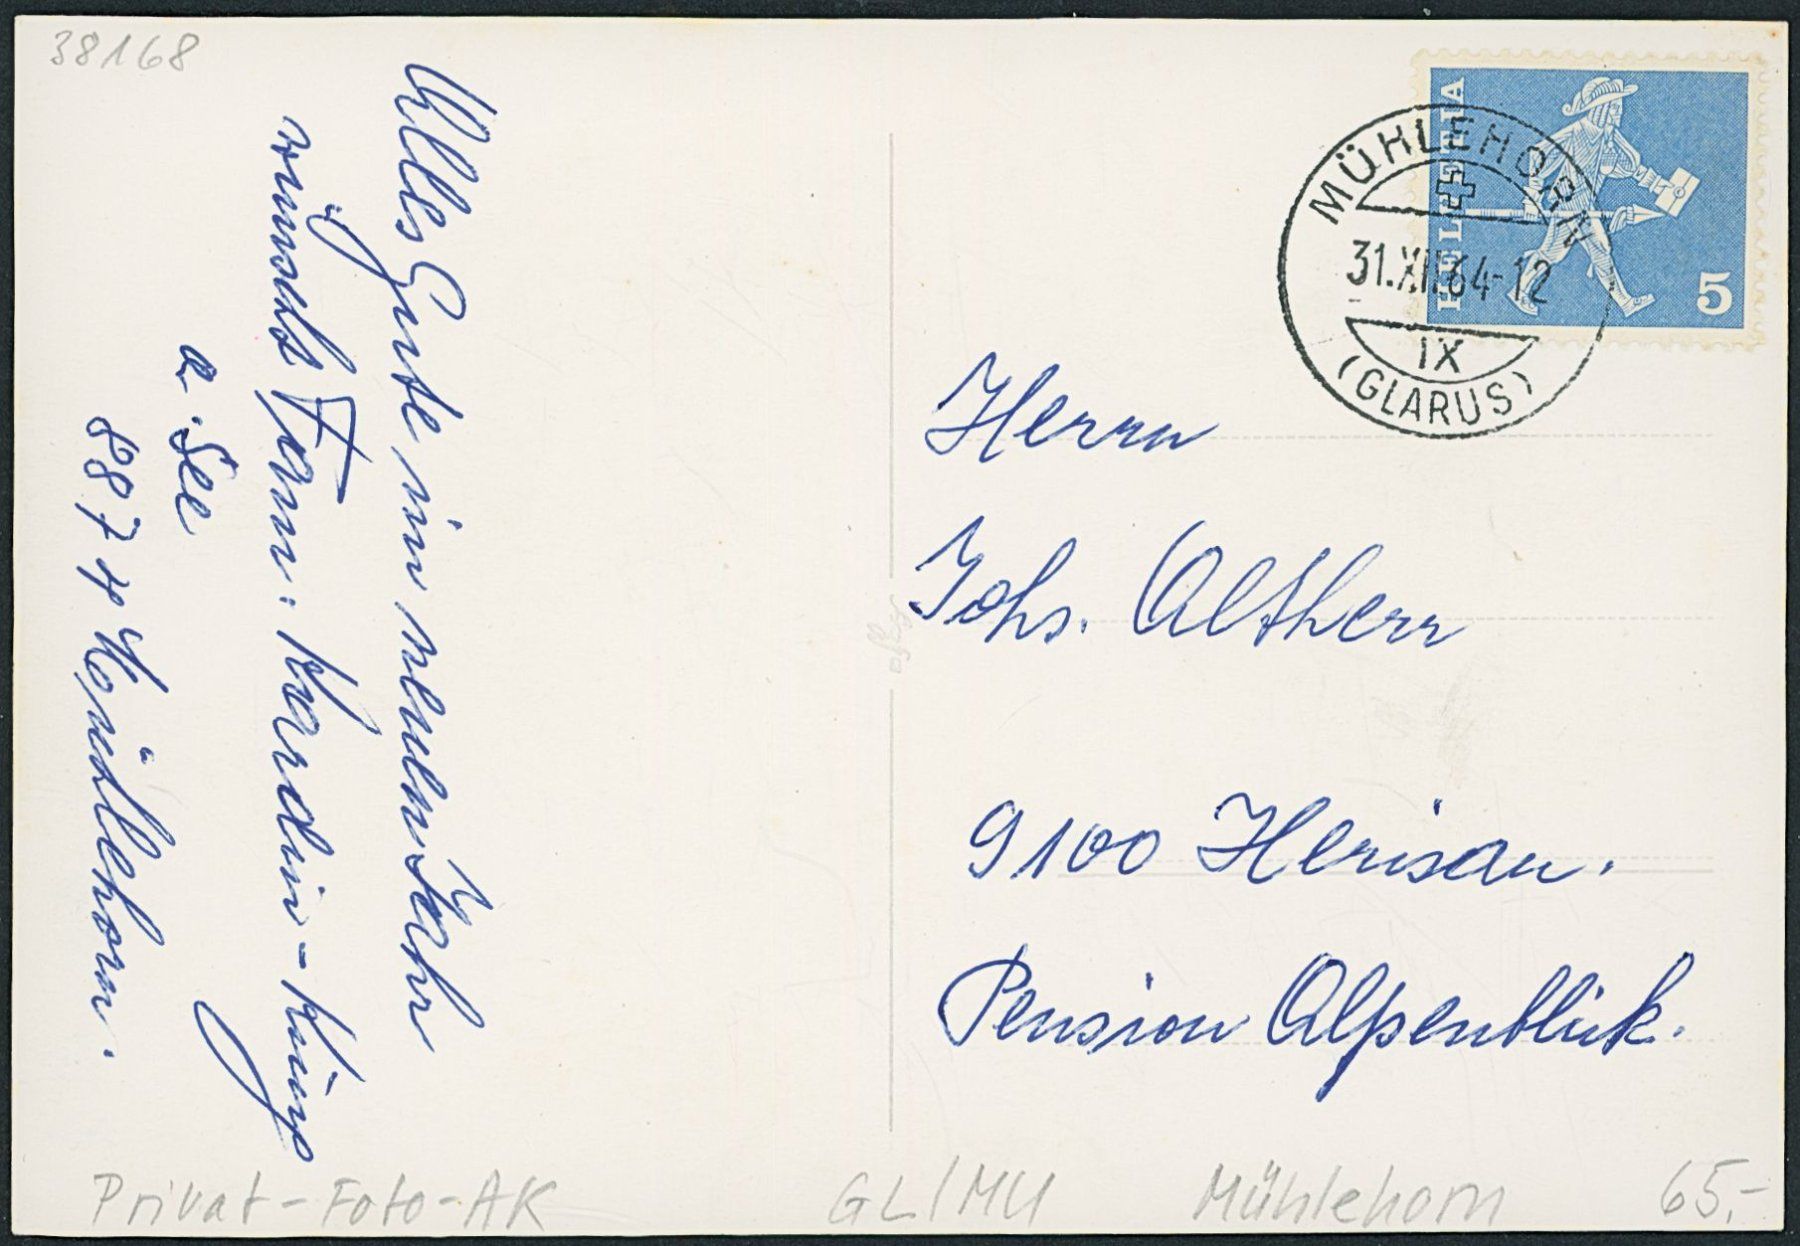 38168
Alles Gute im neuen Jahr
wünscht Fam. Kardin-Kamp
a. See
8874 Mühlehorn.
HELVETIA
5
MÜHLEHORN
31.XII.64-12
IX
(GLARUS)
Herrn
Johs. Altherr
9100 Herisau.
Pension Alpenblick.
Privat-Foto-AK
GL/MU
Mühlehorn
65,-